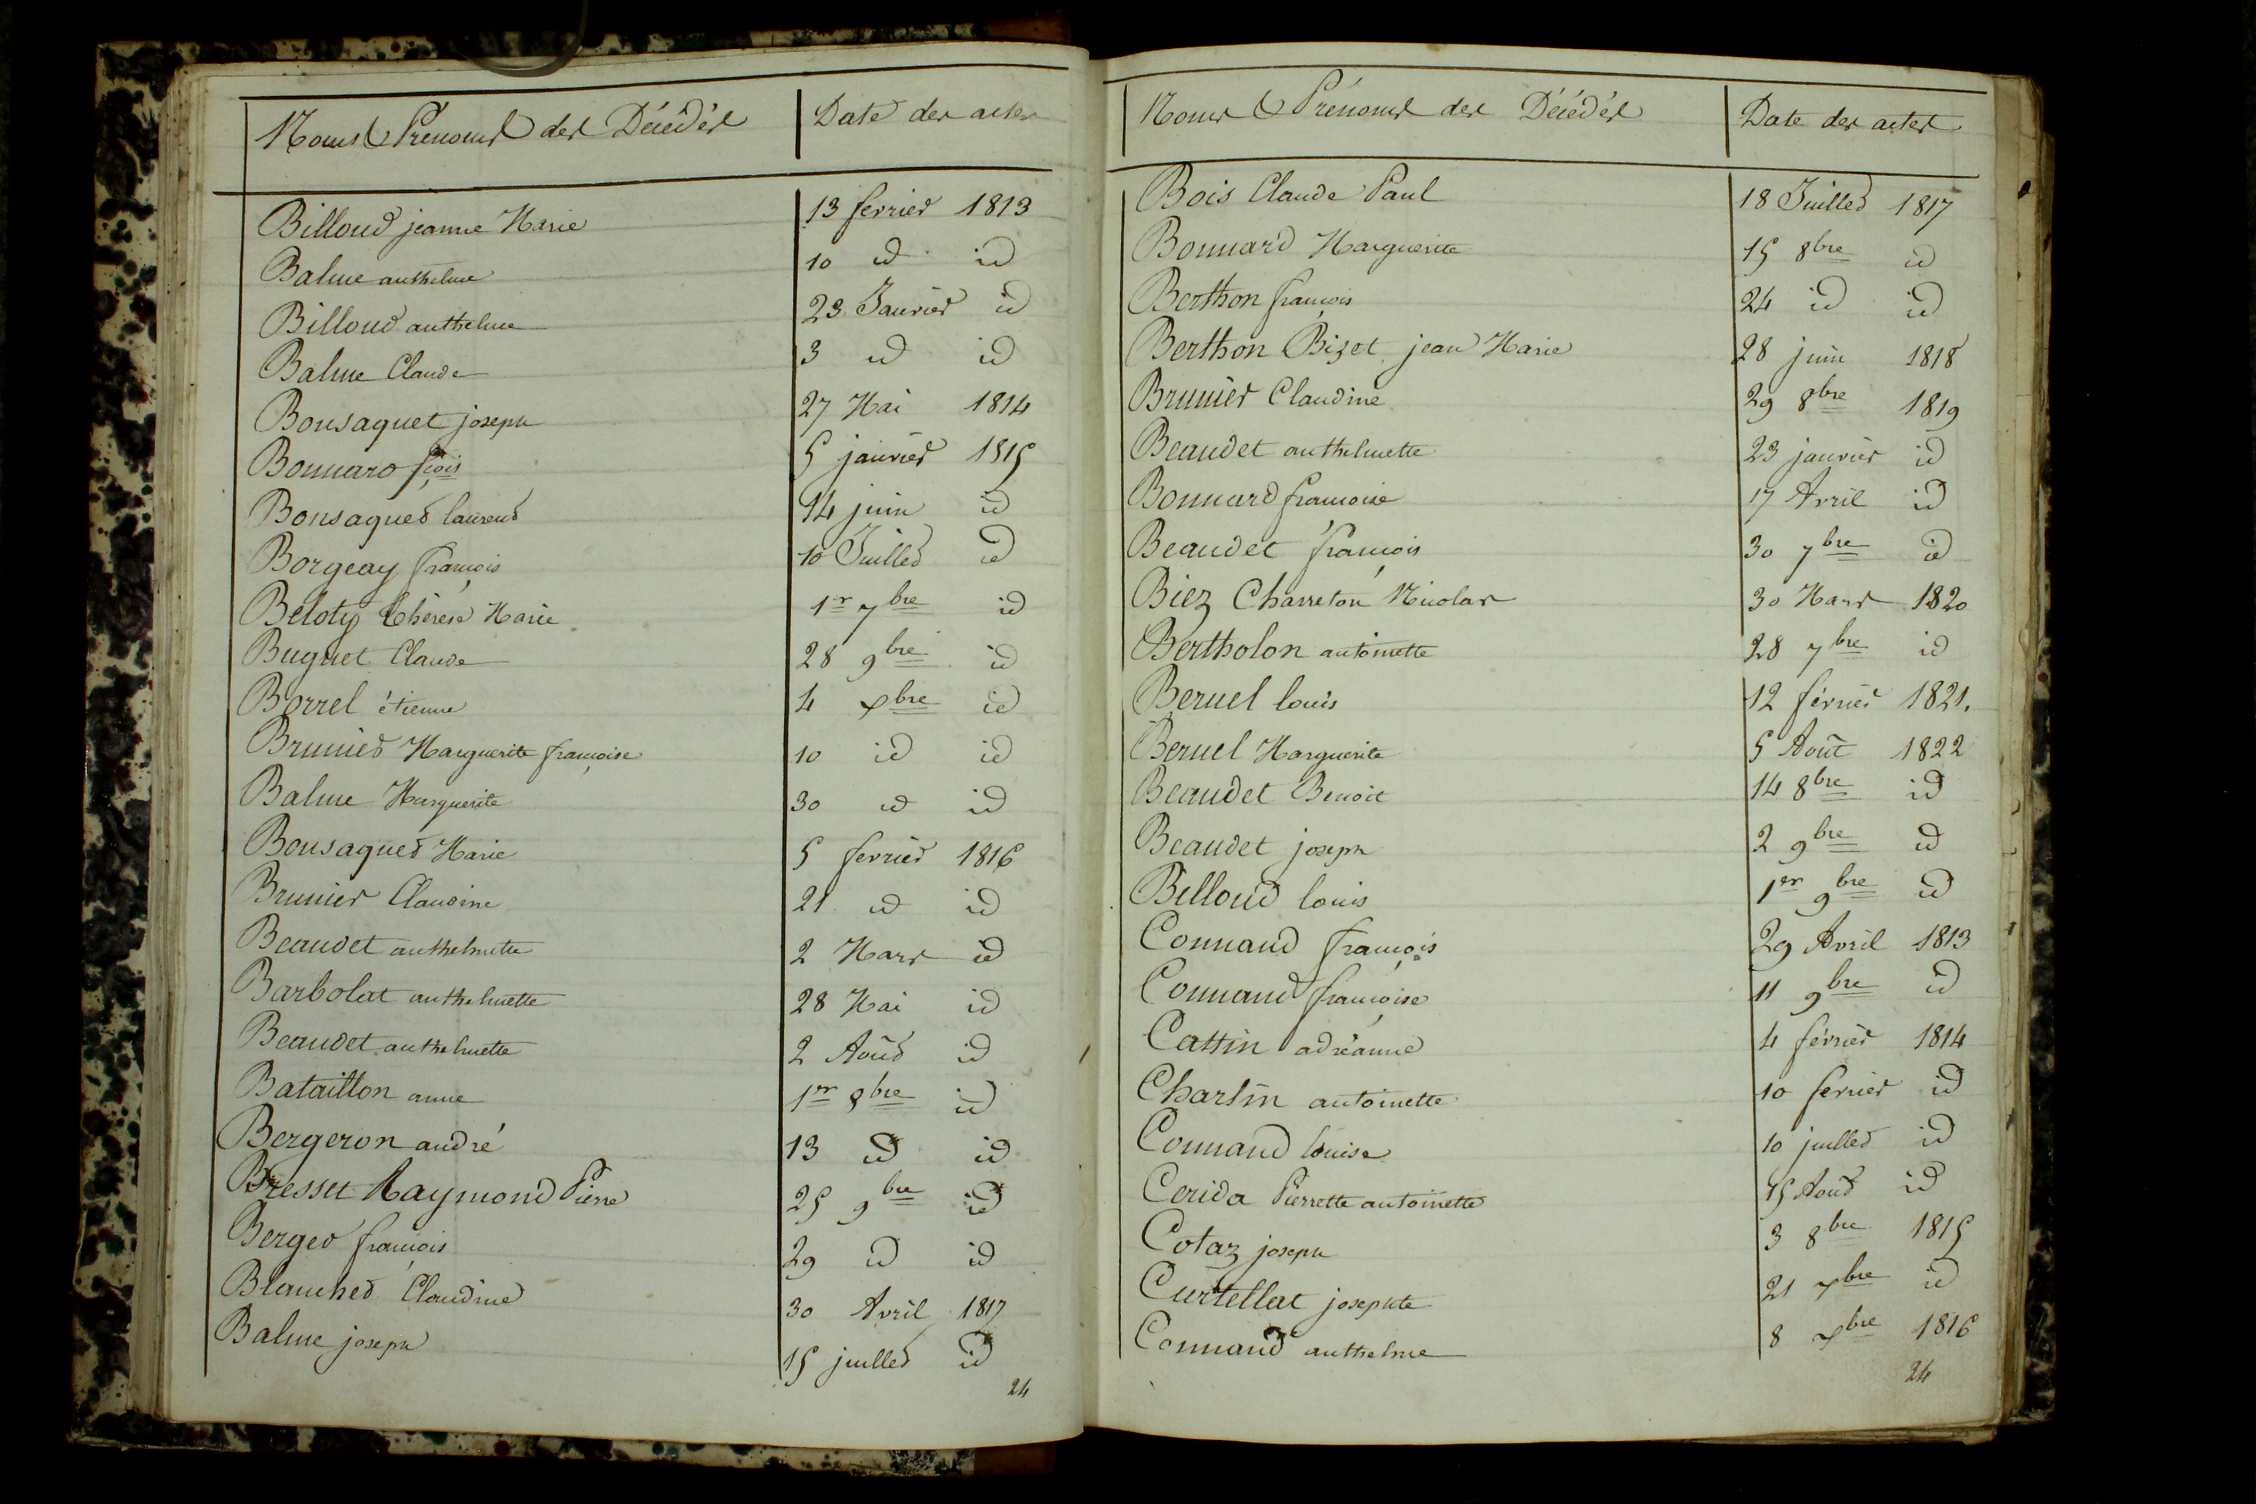 Noms & Prénoms des Décédés Date des actes
Billoud jeanne Marie 13 fevrier 1813
Balme anthelme 10 id id
Billoud anthelme 23 Janvier id
Balme Claude 3 id id
Bonsaquet joseph 27 Mai 1814
Bonnard fçois 5 janvier 1815
Bonsaquet laurent 14 juin id
Borgeay françois 10 Juillet id
Beloty thérèse Marie 1r 7bre id
Buguet Claude 28 9bre id
Borrel étienne 4 xbre id
Brunier Marguerite françoise 10 id id
Balme Marguerite 30 id id
Bonsaquet Marie 5 fevrier 1816
Brunier Claudine 21 id id
Beaudet anthelmette 2 Mars id
Barbolat anthelmette 28 Mai id
Beaudet anthelmette 2 Août id
Bataillon anne 1er 8bre id
Bergeron andré 13 id id
Bresset Raymond Pierre 25 9bre id
Berget françois 29 id id
Blanchet Claudine 30 Avril 1817
Balme joseph 15 juillet id
24
Noms & Prénoms des Décédés Date des actes
Bois Claude Paul 18 Juillet 1817
Bonnard Marguerite 15 8bre id
Berthon françois 24 id id
Berthon Bizet jean Marie 28 juin 1818
Brunier Claudine 29 8bre 1819
Beaudet anthelmette 23 janvier id
Bonnard francoise 17 Avril id
Beaudet françois 30 7bre id
Biez Charreton Nicolas 30 Mars 1820
Bertholon antoinette 28 7bre id
Beruel louis 12 février 1821.
Beruel Marguerite 5 Août 1822
Beaudet Benoit 14 8bre id
Beaudet joseph 2 9bre id
Billoud louis 1er 9bre id
Connand françois 29 Avril 1813
Connand françoise 11 9bre id
Cattin adréanne 4 février 1814
Charlin antoinette 10 fevrier id
Connand louise 10 juillet id
Cerida Pierrette antoinette 15 Août id
Cotaz joseph 3 8bre 1815
Curtellat josephte 21 xbre id
Connand anthelme 8 xbre 1816
24